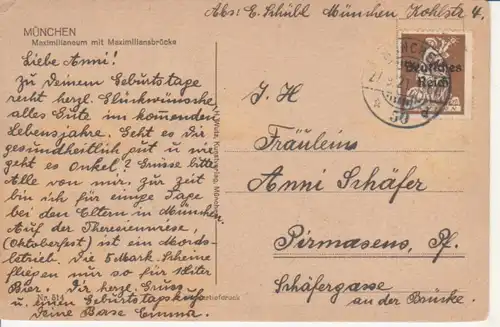 Abs: E. Schübl München Kohlstr. 4.
MÜNCHEN
Maximilianeum mit Maximiliansbrücke
Liebe Anni!
Zu Deinem Geburtstage
recht herzl. Glückwünsche,
alles Gute im kommenden
Lebensjahre. Geht es Dir
gesundheitlich gut u. wie
geht es Onkel? Grüsse bitte
Alle von mir. Zur Zeit
bin ich für einige Tage
bei den Eltern in München.
Auf der Theresienwiese,
(Oktoberfest) ist ein Mords-
betrieb. Die 5 Mark-Scheine
fliegen nur so für 1 Liter
Bier. Dir herzl. Gruss
u. einen Geburtstagskuß
Deine Base Emma.
No. 514
Kunstverlag, München
Deutsches
Reich
I. H
Fräulein
Anni Schäfer
Pirmasens, Pf.
Schäfergasse
an der Brücke.